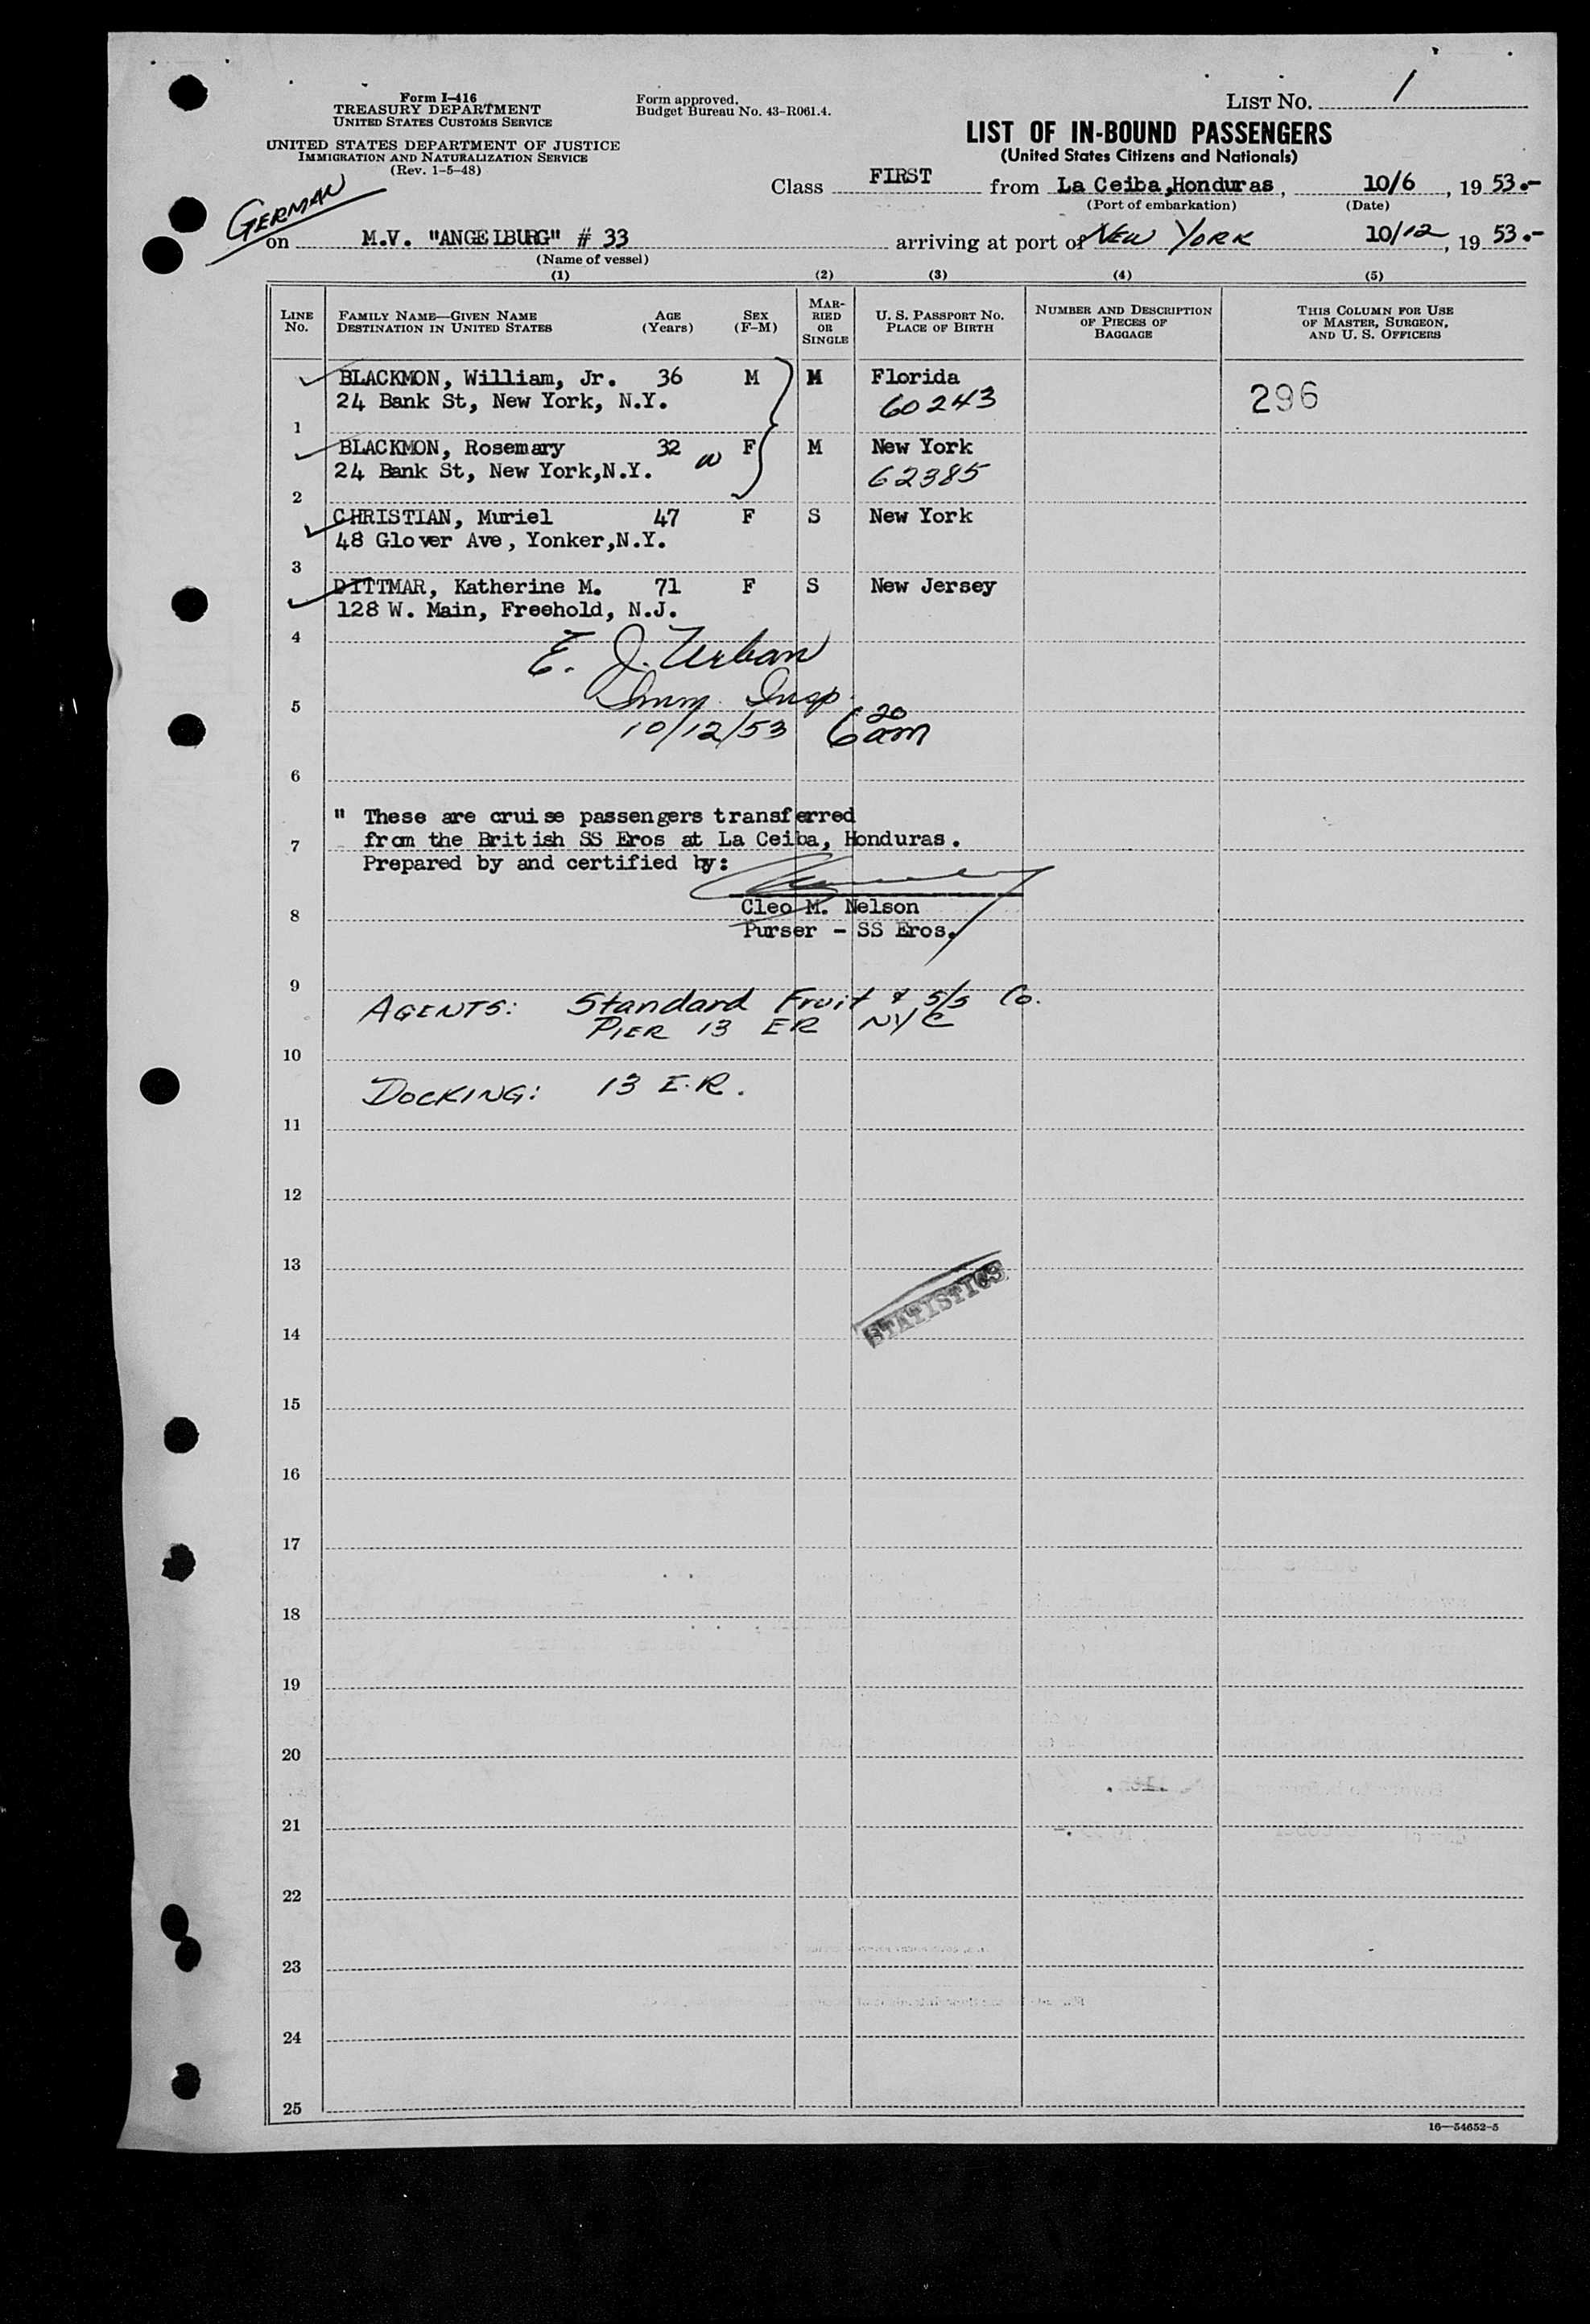 Form I-416
TREASURY DEPARTMENT
UNITED STATES CUSTOMS SERVICE
UNITED STATES DEPARTMENT OF JUSTICE
IMMIGRATION AND NATURALIZATION SERVICE
(Rev. 1-5-48)
Form approved.
Budget Bureau No. 43-R061.4.
LIST NO. 1
LIST OF IN-BOUND PASSENGERS
(United States Citizens and Nationals)
Class FIRST from La Ceiba,Honduras, 10/6, 19 53.-
(Port of embarkation) (Date)
GERMAN
on M.V. "ANGELBURG" # 33 arriving at port of NEW YORK 10/12, 19 53.-
(Name of vessel)
(1) (2) (3) (4) (5)
LINE No. FAMILY NAME—GIVEN NAME DESTINATION IN UNITED STATES AGE (Years) SEX (F-M) MAR-RIED OR SINGLE U. S. PASSPORT NO. PLACE OF BIRTH NUMBER AND DESCRIPTION OF PIECES OF BAGGAGE THIS COLUMN FOR USE OF MASTER, SURGEON, AND U. S. OFFICERS
BLACKMON, William, Jr. 36 M M Florida
24 Bank St, New York, N.Y. 60243 296
1
BLACKMON, Rosemary 32 W F M New York
24 Bank St, New York,N.Y. 62385
2
CHRISTIAN, Muriel 47 F S New York
48 Glover Ave, Yonker,N.Y.
3
DITTMAR, Katherine M. 71 F S New Jersey
128 W. Main, Freehold, N.J.
4
E. J. Urban
Imm. Insp.
5
10/12/53 6 20 am
6
" These are cruise passengers transferred
from the British SS Eros at La Ceiba, Honduras.
7
Prepared by and certified by:
Cleo M. Nelson
8
Purser - SS Eros.
9
AGENTS: Standard Fruit & S/S Co.
PIER 13 ER NYC
10
DOCKING: 13 E.R.
11
12
13
STATISTICS
14
15
16
17
18
19
20
21
22
23
24
25
16—54652-5